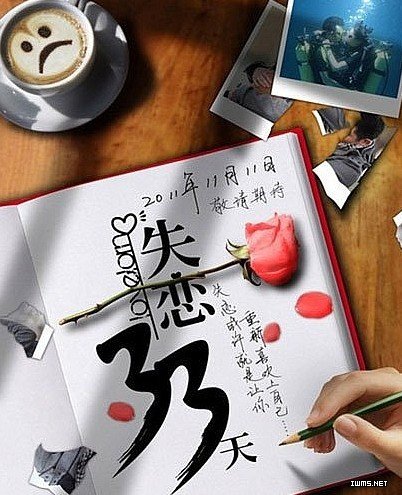 2011年11月11日
敬请期待
Lovelorn
失恋
33天
失恋或许就是让你
重新喜欢上自己……
IWMS.NET